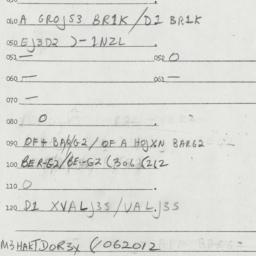 040 A GROJS3 BR1K / D1 BR1K
050 EJ3D2 )-1NZL
051 — 052 O
060 — 061 —
070 —
080 O
090 OF4 BARG2 / OF A HOJXN BARG2
100 BER-G2/BE-G2 (306 (212
110 O
120 D1 XVALJ3S / VALJ3S
M3HAKTDOR3X (/062012